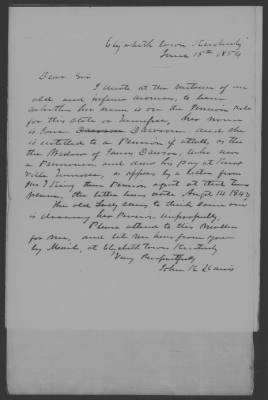 Elizabeth Town Kentucky
June 15th 1854
Dear Sir
I write at the instance of an
old and infirm woman, to learn
whether her name is on the Pension, role
for this State or Tennessee, her name
is Dawson and she
is entitled to a Pension if at all, as the
the Widow of Dawson, who was
a Pensioner and drew his pay at Knox
ville Tennessee, as appears by a letter from
King then Pension agent at that
the letter bears date Augt 14 184
The old Lady seems to think some one
is drawing her Pension improperly,
Please attend to this Matter
for me, and let me hear from you
by Mail, at Elizabethtown Kentucky
Very Respectfully
John